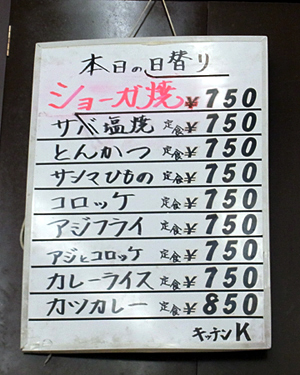 本日の日替り
ショーガ焼 ¥750
サバ塩焼 定食¥750
とんかつ 定食¥750
サンマひもの 定食¥750
コロッケ 定食¥750
アジフライ 定食¥750
アジとコロッケ 定食¥750
カレーライス 定食¥750
カツカレー 定食¥850
キッチンK